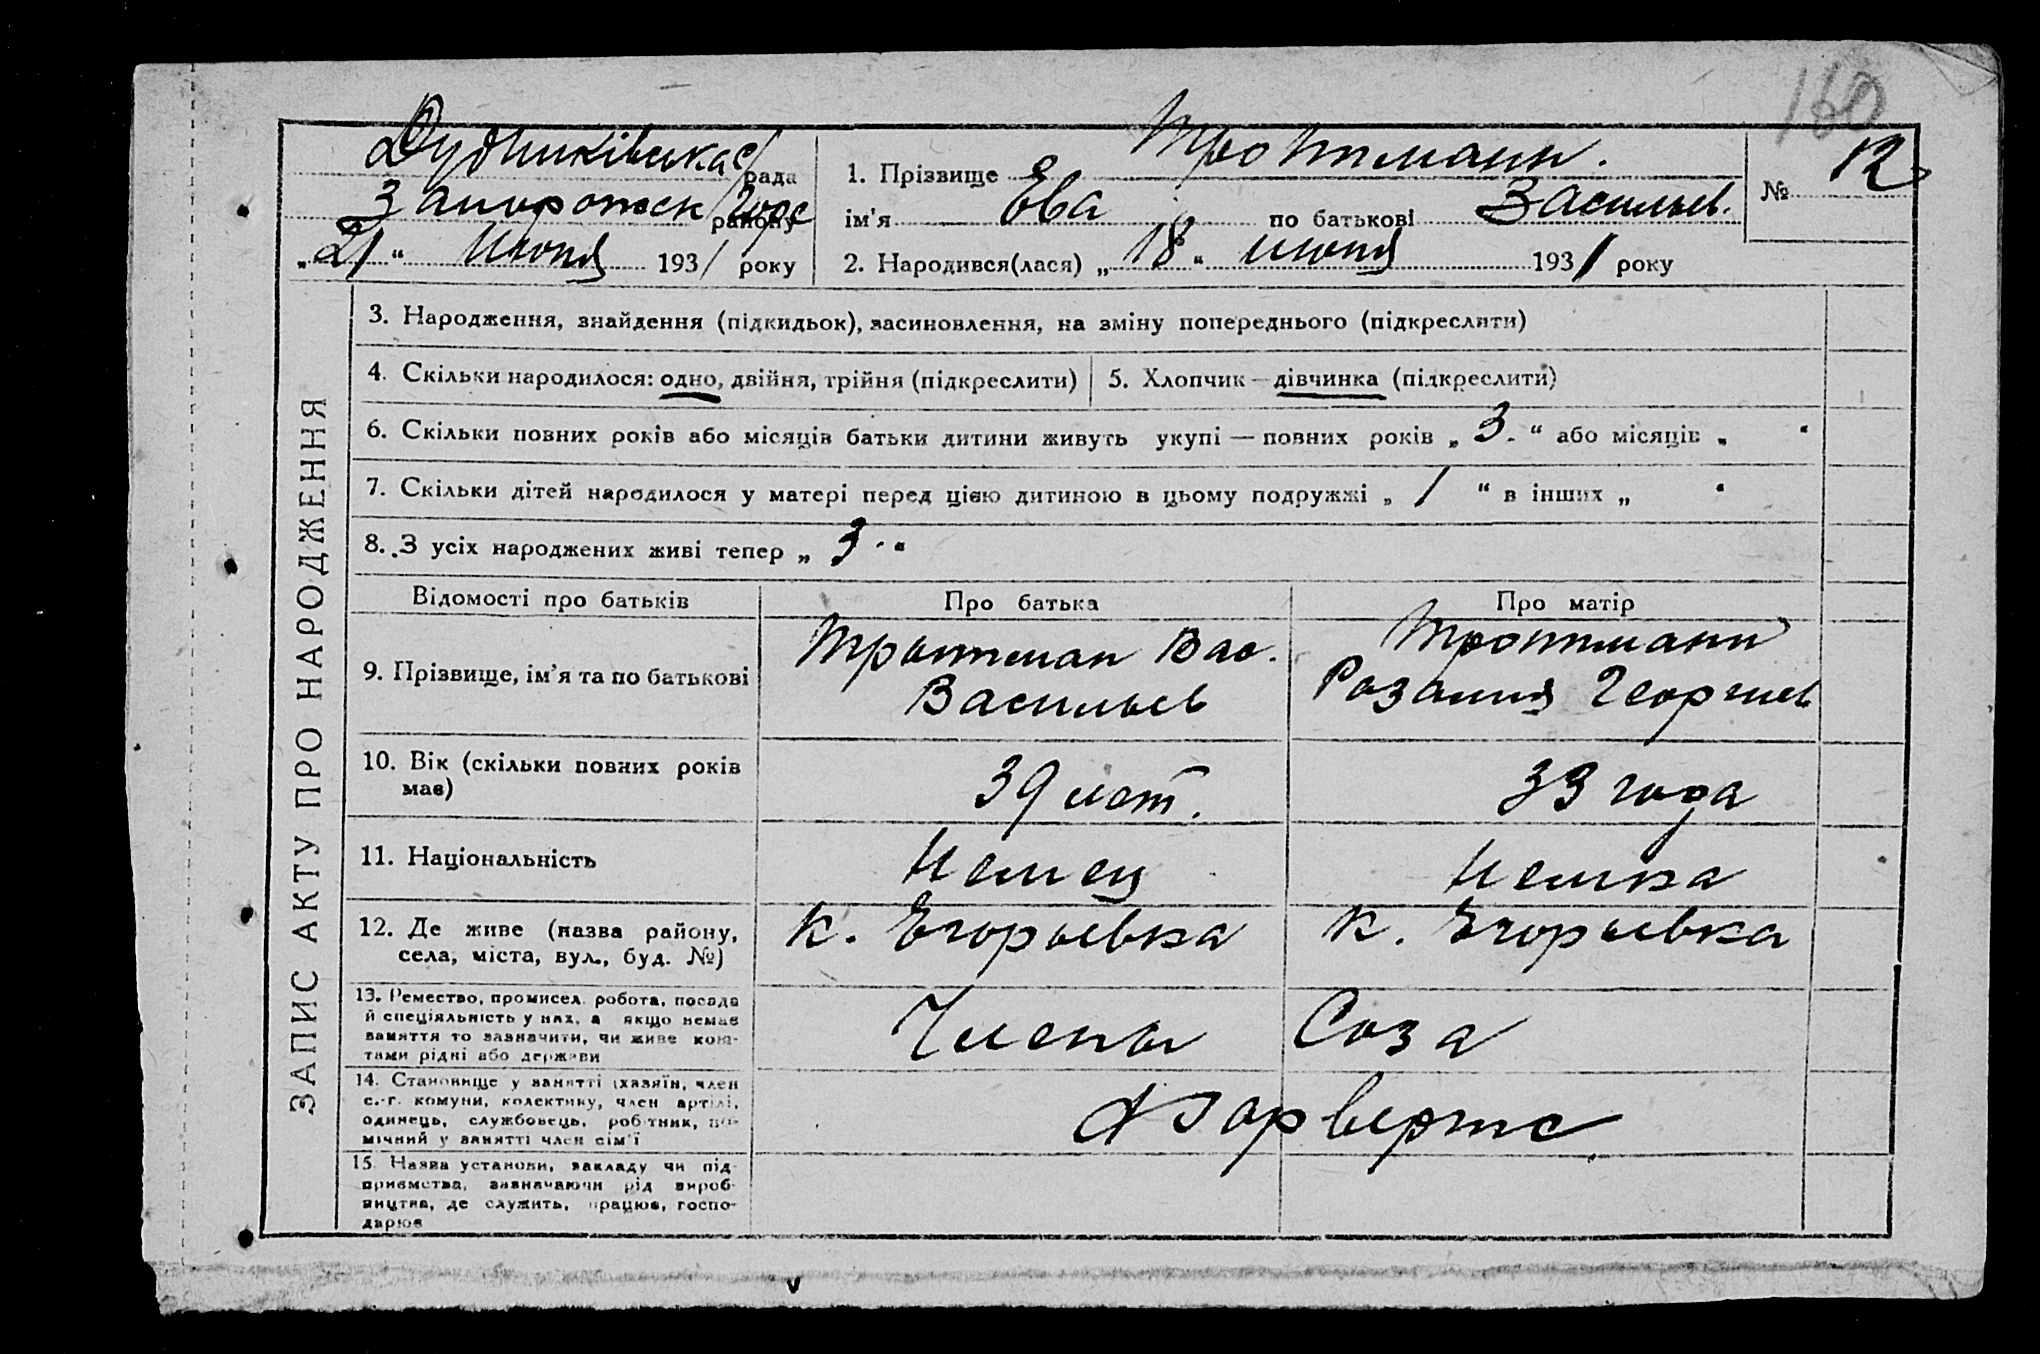 160
Дудниківська с/рада
Запорожск Горс району
„21“ Июня 1931 року
1. Прізвище Тротманн.
ім'я Ева по батькові Васильев.
2. Народився(лася) „18“ июня 1931 року
№ 12
ЗАПИС АКТУ ПРО НАРОДЖЕННЯ
3. Народження, знайдення (підкидьок), засиновлення, на зміну попереднього (підкреслити)
4. Скільки народилося: одно, двійня, трійня (підкреслити)
5. Хлопчик — дівчинка (підкреслити)
6. Скільки повних років або місяців батьки дитини живуть укупі — повних років „3.“ або місяців „ “
7. Скільки дітей народилося у матері перед цією дитиною в цьому подружжі „1“ в інших „ “
8. З усіх народжених живі тепер „3“
Відомості про батьків
Про батька
Про матір
9. Прізвище, ім'я та по батькові
Тротман Вас.
Васильев
Тротманн
Розалия Георгиев
10. Вік (скільки повних років
має)
39 лет.
33 года
11. Національність
Немец
Немка
12. Де живе (назва району,
села, міста, вул., буд. №)
к. Егорьевка
к. Егорьевка
13. Ремество, промисел, робота, посада
й спеціяльність у них, а якщо немає
заняття то зазначити, чи живе кош-
тами рідні або держави
Члены Соза
14. Становище у занятті (хазяїн, член
с.-г. комуни, колективу, член артілі,
одинець, службовець, робітник, по-
мічний у занятті член сім'ї
Форвертс
15. Назва установи, закладу чи під-
приємства, зазначаючи рід вироб-
ництва, де служить, працює, госпо-
дарює